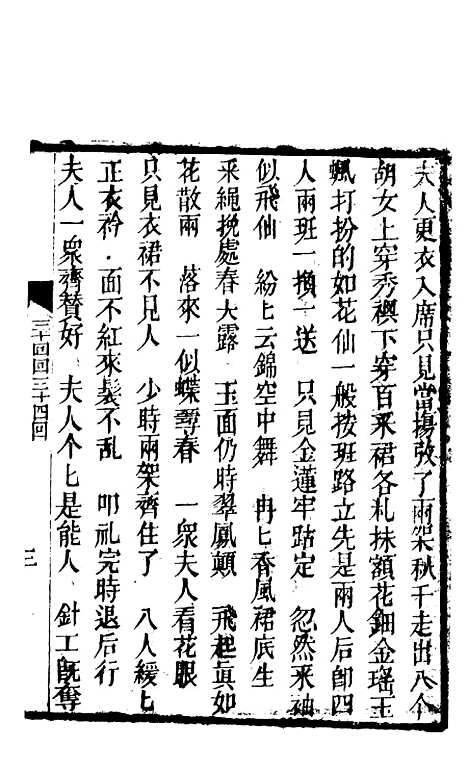 夫人更衣入席只見當場放了兩架秋千走出八个
胡女上穿秀襖下穿百釆裙各札抹額花鈿金瑤玉
珮打扮的如花仙一般按班路立先是兩人后卽四
人兩班一換一送　只見金蓮牢跕定　忽然釆袖
似飛仙　紛匕云錦空中舞　冉匕香風裙底生
釆繩挽處春大露　玉面仍時翠鳳顛　飛起眞如
花散雨　落來一似蝶尋春　一衆夫人看花眼
只見衣裙不見人　少時兩架齊住了　八人緩匕
正衣衿　面不紅來髮不乱　叩礼完時退后行
夫人一衆齊賛好　夫人个匕是能人　針工旣奪
三十回回三十四回
三